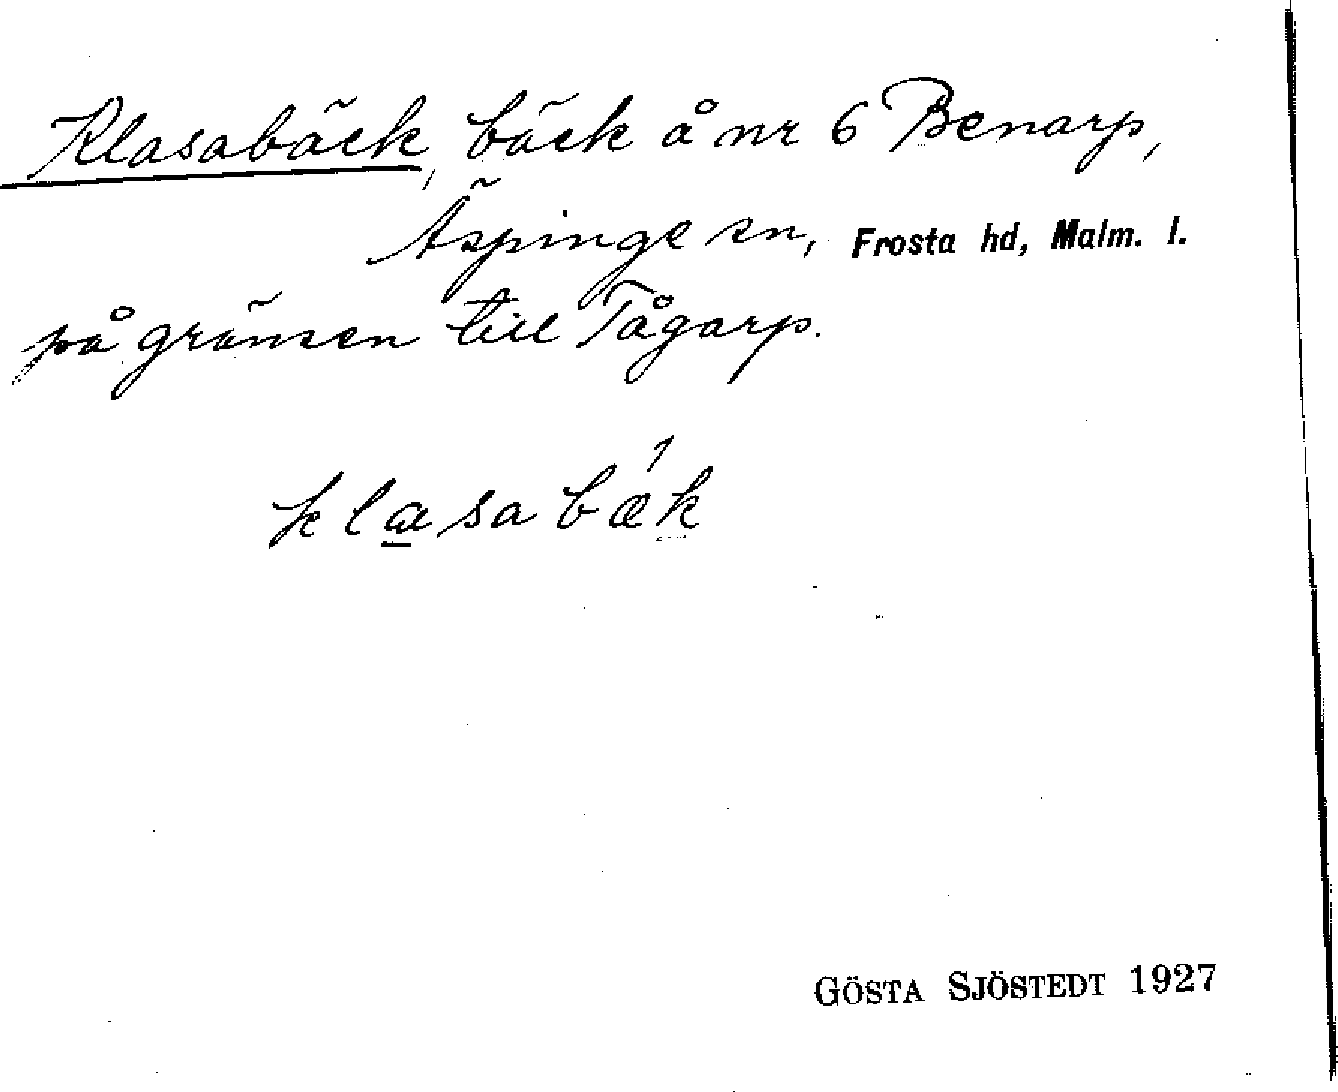 Klasabäck, bäck å nr 6 Benarp,
Äspinge sn, Frosta hd, Malm. l.
på gränsen till Tågarp.
klasabæk
GÖSTA SJÖSTEDT 1927